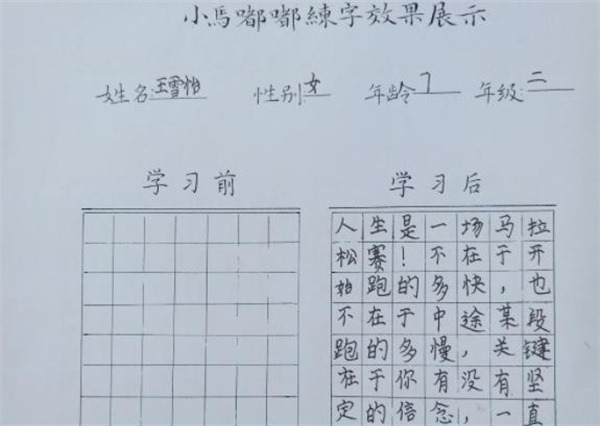 小馬嘟嘟練字效果展示
姓名:王雪怡 性别:女 年龄7 年级:二
学习前 学习后
人生是一场马拉
松赛！不在于开
始跑的多快，也
不在于中途某段
跑的多慢，关键
在于你有没有坚
定的信念，一直